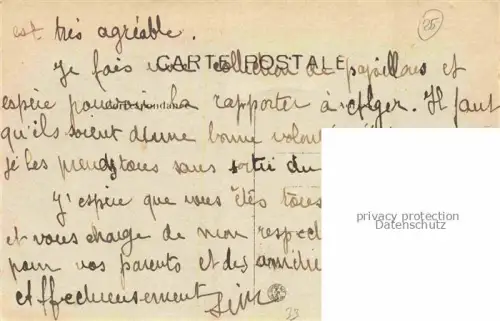 est très agréable.
25
CARTE POSTALE
Je fais une collection de papillons et
espère pouvoir la rapporter à Alger. Il faut
Correspondance
qu'ils soient d'une bonne volonté
je les prends tous sans sortir du
J'espère que vous êtes tous
privacy protection
Datenschutz
et vous charge de mon respect
pour vos parents et des amitiés
Affectueusement